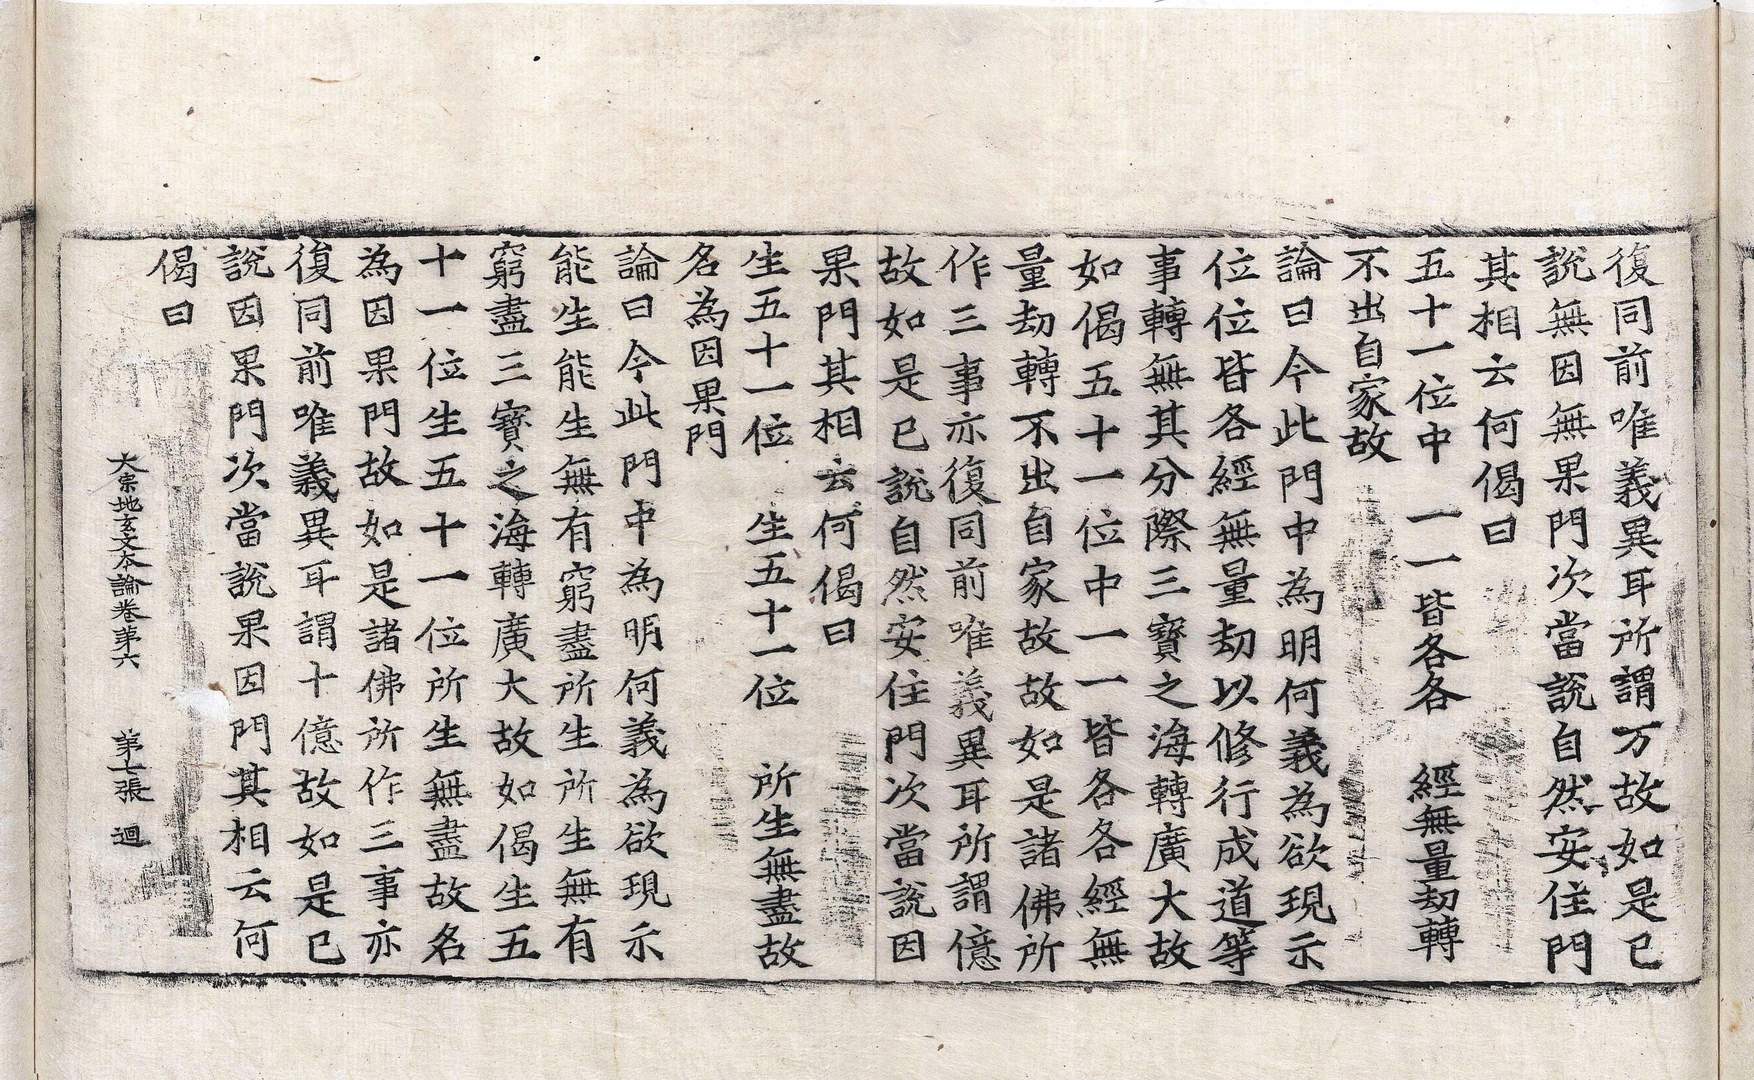 復同前唯義異耳所謂万故如是已
說無因無果門次當說自然安住門
其相云何偈曰
五十一位中　一一皆各各　經無量劫轉
不出自家故
論曰今此門中為明何義為欲現示
位位皆各經無量劫以修行成道等
事轉無其分際三寶之海轉廣大故
如偈五十一位中一一皆各各經無
量劫轉不出自家故故如是諸佛所
作三事亦復同前唯義異耳所謂億
故如是已說自然安住門次當說因
果門其相云何偈曰
生五十一位　生五十一位　所生無盡故
名為因果門
論曰今此門中為明何義為欲現示
能生能生無有窮盡所生所生無有
窮盡三寶之海轉廣大故如偈生五
十一位生五十一位所生無盡故名
為因果門故如是諸佛所作三事亦
復同前唯義異耳謂十億故如是已
說因果門次當說果因門其相云何
偈曰
大宗地玄文本論卷第六　第七張　迴